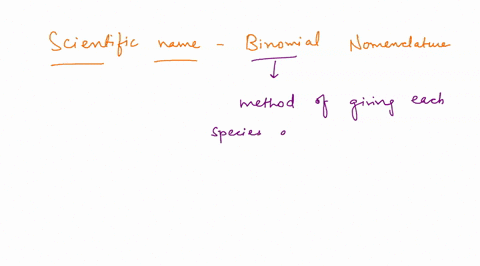 Scientific name - Binomial Nomenclature
method of giving each
species